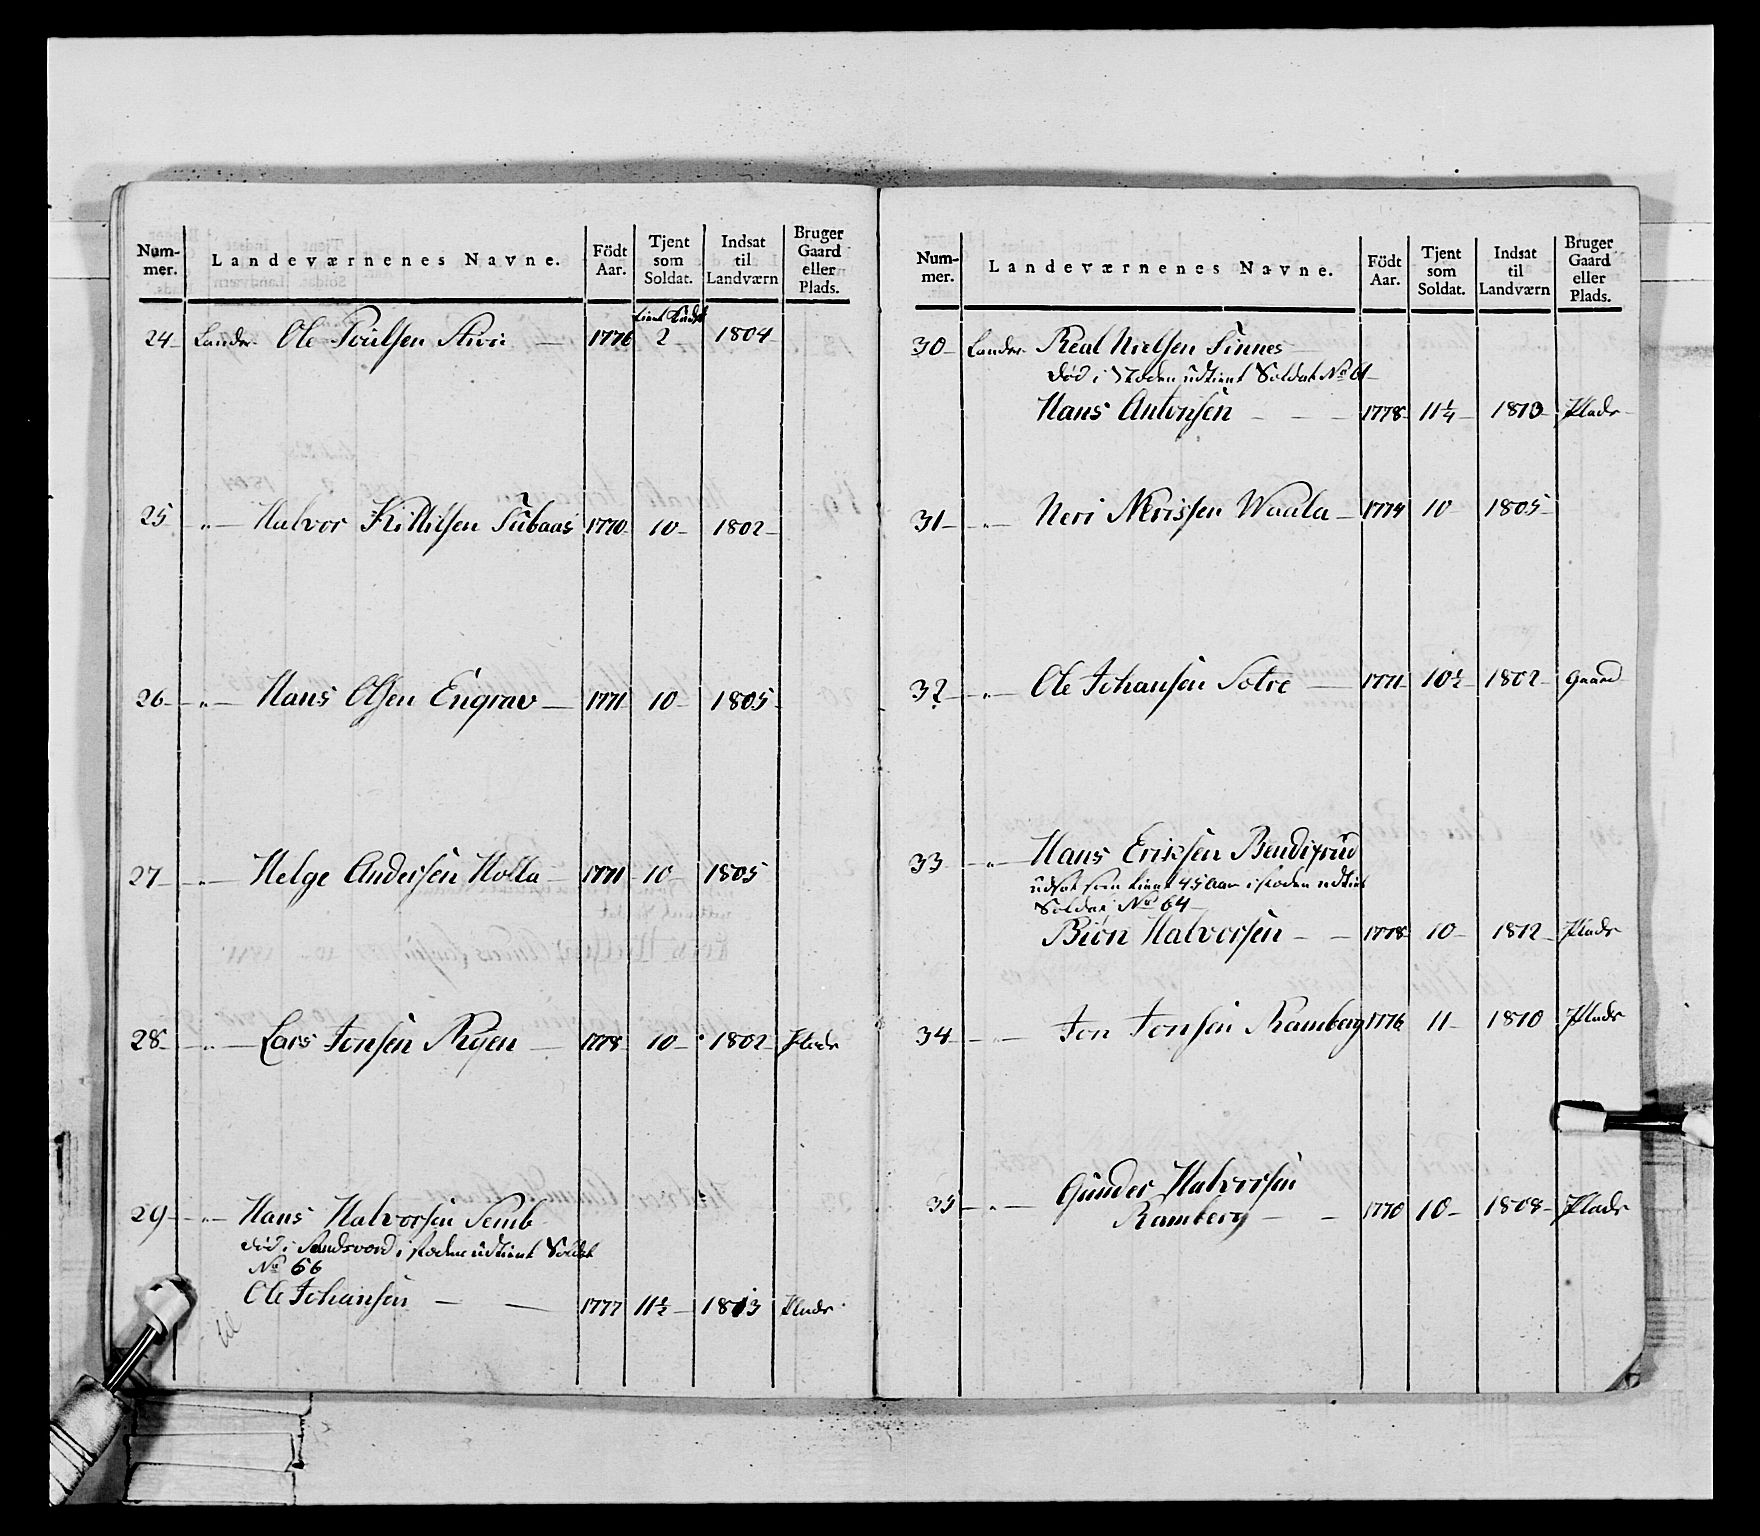 Num-
mer.
Landeværnenes Navne.
Födt
Aar.
Tjent
som
Soldat.
Indsat
til
Landværn
Bruger
Gaard
eller
Plads.
24 Lander Ole Poulsen 1776 2 1804
25 " Halvor Kittilsen Tubaas 1770 10 1802
26 " Hans Olsen Engrav 1771 10 1805
27 " Helge Andersen Holla 1771 10 1805
28 " Lars Jonsen Ryen 1778 10 1802 Plads
29 " Hans Halvorsen Semb
död i i steden udtient Soldat
No 66
Ole Johansen 1777 11½ 1813 Plads
Num-
mer.
Landeværnenes Navne.
Födt
Aar.
Tjent
som
Soldat.
Indsat
til
Landværn
Bruger
Gaard
eller
Plads.
30 Lander Real Nielsen Finnes
död i Steden udtient Soldat No 61
Hans Antonsen 1778 11¼ 1813 Plads
31 " Neri Nerissen Waala 1774 10 1805
32 " Ole Johansen Solve 1771 10½ 1802 Gaard
33 " Hans Eriksen Bendigrud
udsat som tient 45 Aar i steden udtient
Soldat No 64
Biön Halvorsen 1778 10 1812 Plads
34 " Jon Jonsen Ramberg 1776 11 1810 Plads
35 " Gunder Halvorsen
Ramberg 1770 10 1808 Plads